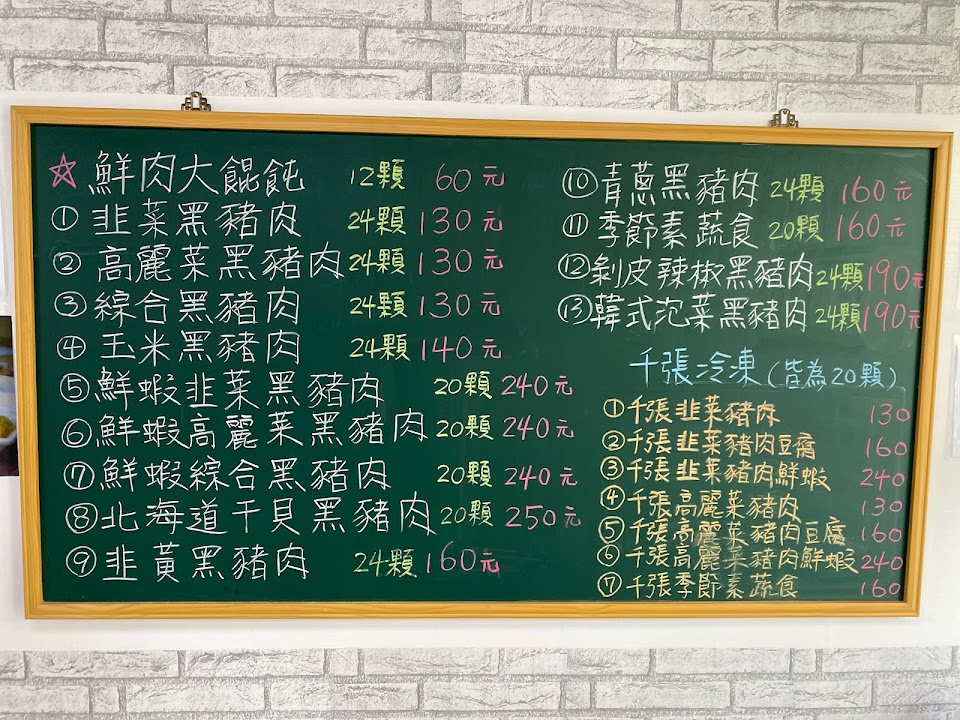 ☆鮮肉大餛飩 12顆 60元
①韭菜黑豬肉 24顆 130元
②高麗菜黑豬肉 24顆 130元
③綜合黑豬肉 24顆 130元
④玉米黑豬肉 24顆 140元
⑤鮮蝦韭菜黑豬肉 20顆 240元
⑥鮮蝦高麗菜黑豬肉 20顆 240元
⑦鮮蝦綜合黑豬肉 20顆 240元
⑧北海道干貝黑豬肉 20顆 250元
⑨韭黃黑豬肉 24顆 160元
⑩青蔥黑豬肉 24顆 160元
⑪季節素蔬食 20顆 160元
⑫剝皮辣椒黑豬肉 24顆 190元
⑬韓式泡菜黑豬肉 24顆 190元
千張冷凍(皆為20顆)
①千張韭菜豬肉 130
②千張韭菜豬肉豆腐 160
③千張韭菜豬肉鮮蝦 240
④千張高麗菜豬肉 130
⑤千張高麗菜豬肉豆腐 160
⑥千張高麗菜豬肉鮮蝦 240
⑦千張季節素蔬食 160